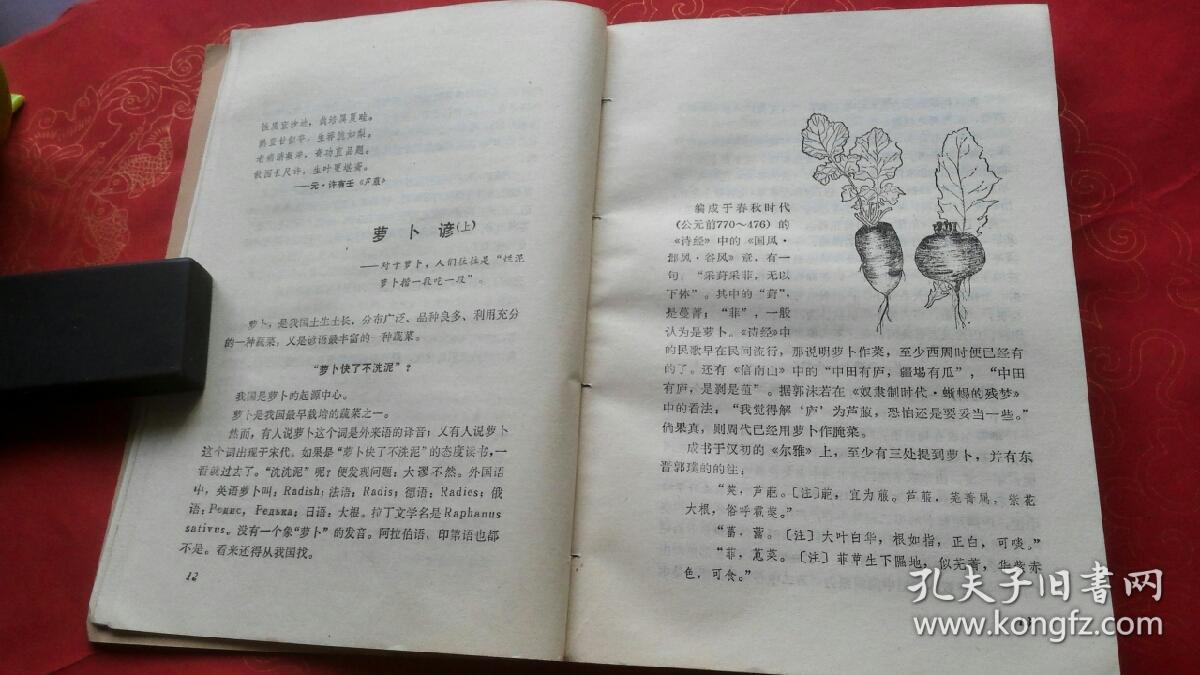 性质宜沙地，栽培属夏畦。
熟宜甘似芋，生荐脆如梨。
老病消凝滞，奇功直品题。
故园长尺许，生叶更堪齑。
——元·许有壬《芦菔》
萝卜谚(上)
——对于萝卜，人们往往是“烘泥
萝卜揩一段吃一段”。
萝卜，是我国土生土长，分布广泛、品种良多、利用充分
的一种蔬菜，又是谚语最丰富的一种蔬菜。
“萝卜快了不洗泥”？
我国是萝卜的起源中心。
萝卜是我国最早栽培的蔬菜之一。
然而，有人说萝卜这个词是外来语的译音；又有人说萝卜
这个词出现于宋代。如果是“萝卜快了不洗泥”的态度读书，一
看就过去了。“洗洗泥”呢？便发现问题：大谬不然。外国语
中，英语萝卜叫：Radish；法语：Radis；德语：Radies；俄
语：Редис，Редька；日语：大根。拉丁文学名是Raphanus
sativus。没有一个象“萝卜”的发音。阿拉伯语、印第语也都
不是。看来还得从我国找。
12
编成于春秋时代
(公元前770～476)的
《诗经》中的《国风·
邶风·谷风》章，有一
句，“采葑采菲，无以
下体”。其中的“葑”，
是蔓菁；“菲”，一般
认为是萝卜。《诗经》中
的民歌早在民间流行，那说明萝卜作菜，至少西周时便已经有
的了。还有《信南山》中的“中田有庐，疆場有瓜”，“中田
有庐，是剥是菹”。据郭沫若在《奴隶制时代·蜥蜴的残梦》
中的看法，“我觉得解‘庐’为芦菔，恐怕还是要妥当一些。”
倘果真，则周代已经用萝卜作腌菜。
成书于汉初的《尔雅》上，至少有三处提到萝卜，并有东
晋郭璞的的注：
“葖，芦萉。〔注〕萉，宜为菔。芦菔，芜菁属，紫花
大根，俗呼雹葖。”
“葍，䔰。〔注〕大叶白华，根如指，正白，可啖。”
“菲，蒠菜。〔注〕菲草生下隰地，似芜菁，华紫赤
色，可食。”
孔夫子旧书网
www.kongfz.com